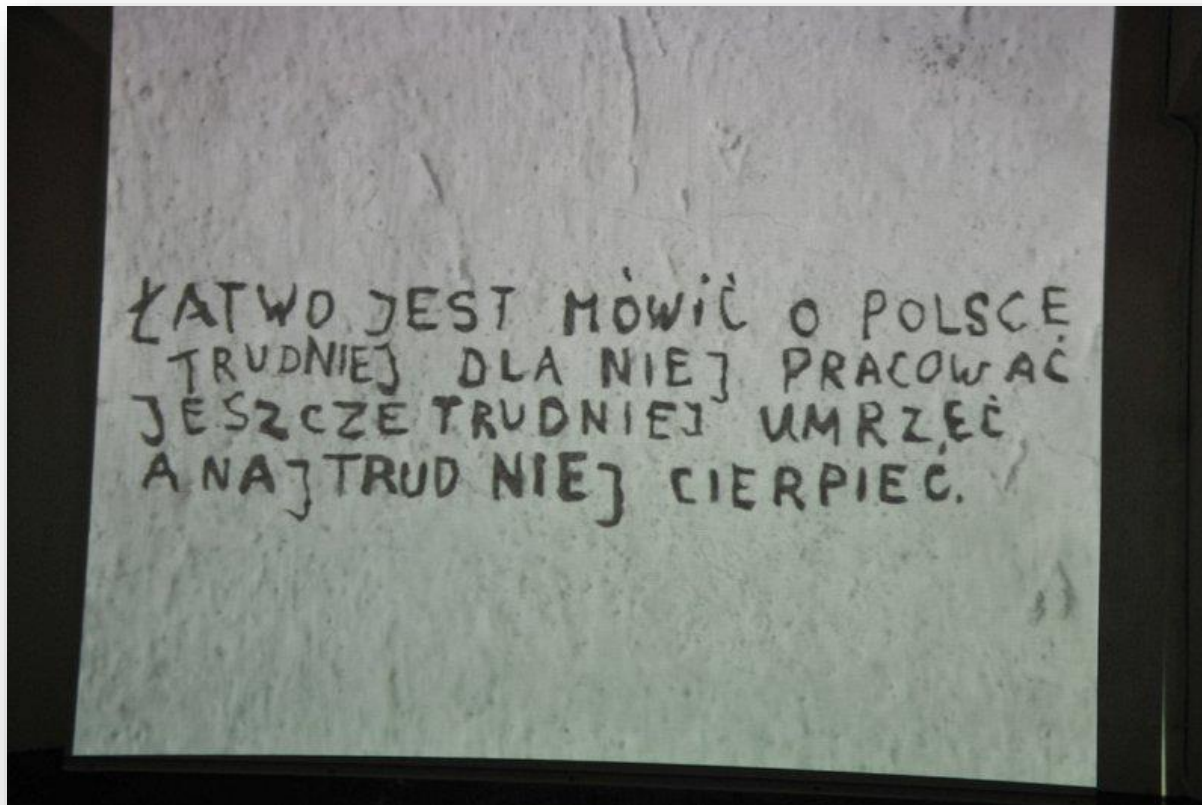 ŁATWO JEST MÓWIĆ O POLSCE
TRUDNIEJ DLA NIEJ PRACOWAĆ
JESZCZE TRUDNIEJ UMRZEĆ
A NAJTRUDNIEJ CIERPIEĆ.